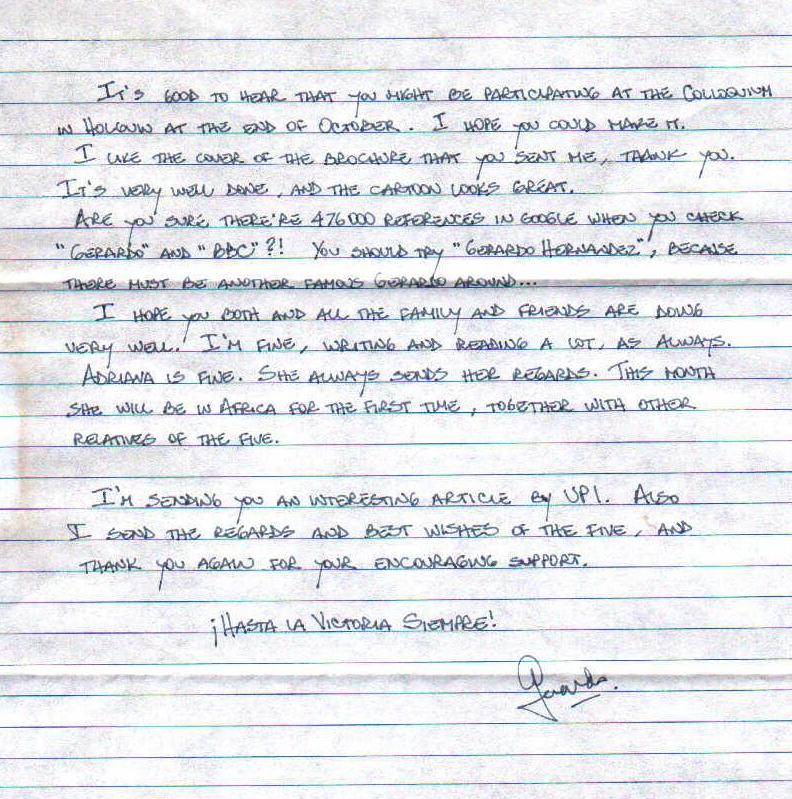 It's good to hear that you might be participating at the Colloquium
in Holguin at the end of October. I hope you could make it.
I like the cover of the brochure that you sent me, thank you.
It's very well done, and the cartoon looks great.
Are you sure there're 476000 references in Google when you check
"Gerardo" and "BBC"?! You should try "Gerardo Hernandez", because
there must be another famous Gerardo around...
I hope you both and all the family and friends are doing
very well. I'm fine, writing and reading a lot, as always.
Adriana is fine. She always sends her regards. This month
she will be in Africa for the first time, together with other
relatives of the Five.
I'm sending you an interesting article by UPI. Also
I send the regards and best wishes of the Five, and
thank you again for your encouraging support.
¡Hasta la Victoria Siempre!
Gerardo.